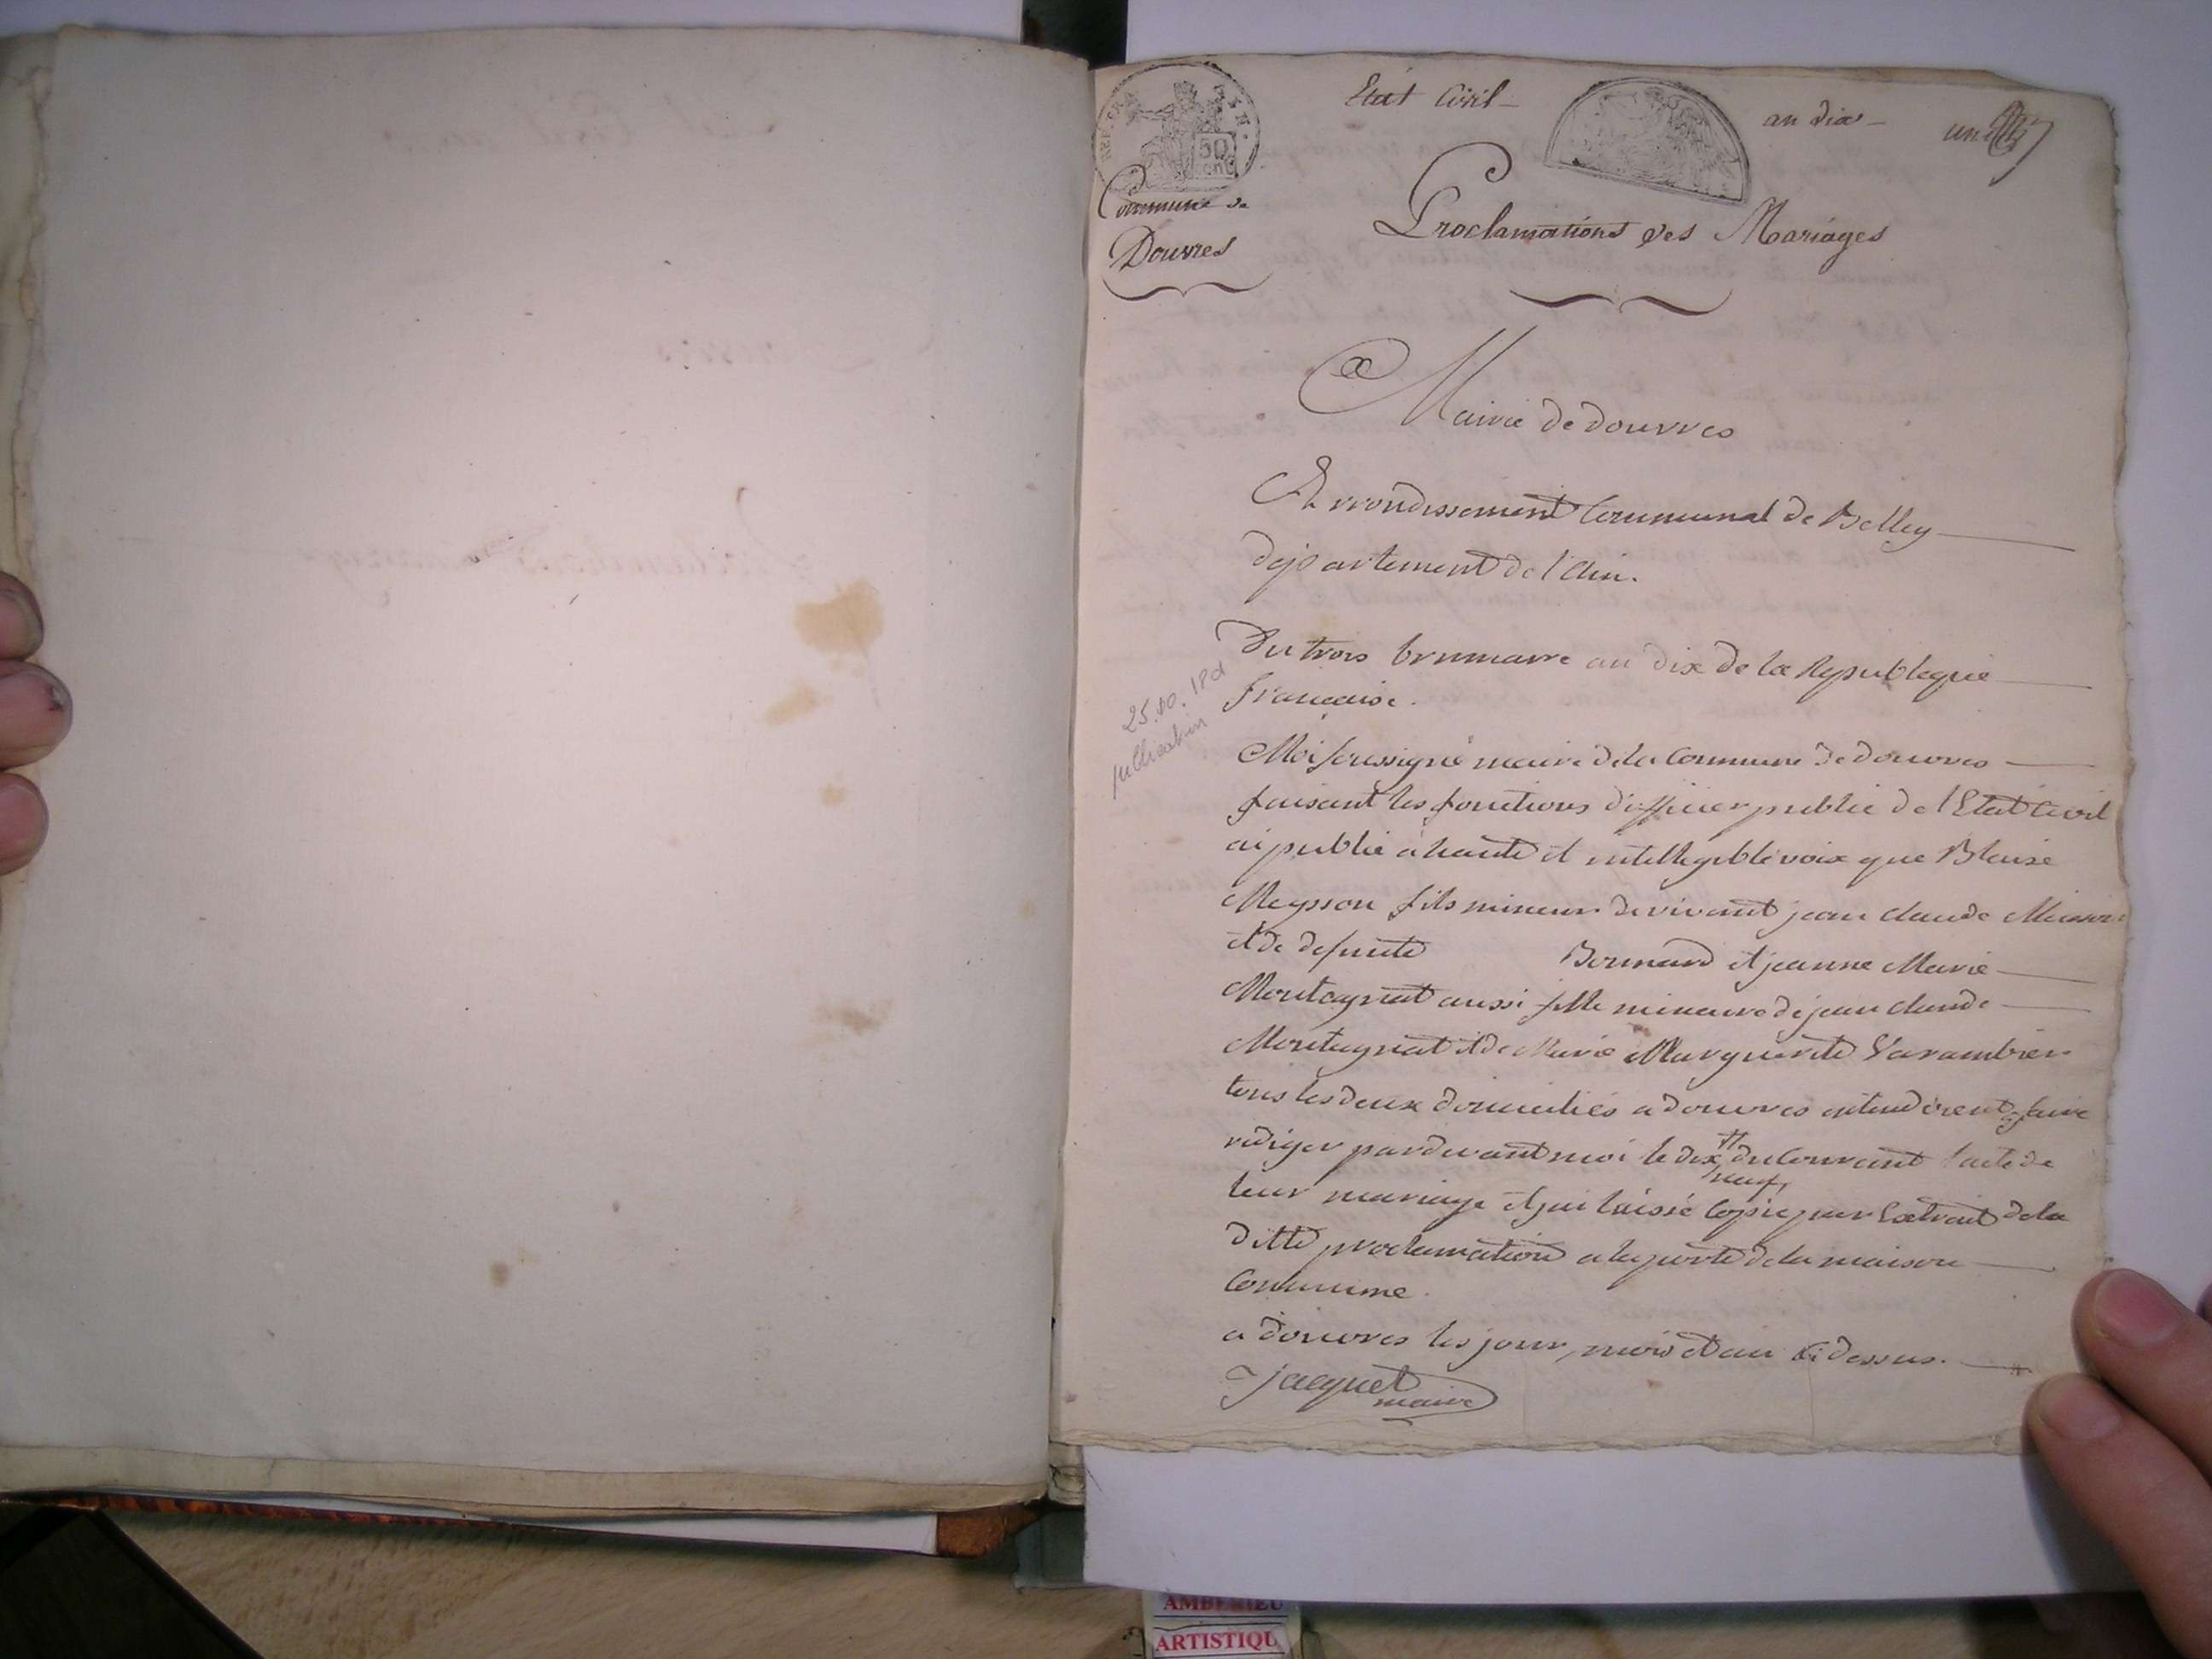 Etat Civil
an dix
un
REP. FRA
50
cent
Commune de
Douvres
Proclamations des Mariages
Mairie de douvres
Arrondissement Communal de Belley
departement de l'Ain.
Du trois brumaire an dix de la Republique
française.
25.10.1801
publication
Moi soussigné maire de la Commune de douvres
faisant les fonctions d'officier public de l'Etat Civil
ai publié a haute et intelligible voix que Blaise
Meysson fils mineur de vivant jean claude Meisson
et de defunte Bernard et jeanne Marie
Montagnat aussi fille mineure de jean claude
Montagnat et de Marie Marguerite Varambier
tous les deux domiciliés a douvres entendirent faire
rediger pardevant moi le dix neuf du Courrant l'acte de
leur mariage et j'ai laissé Copie par Extrait de la
ditte proclamation a la porte de la maison
Commune.
a douvres les jour, mois et an ci dessus.
jacquet
maire
AMBERIEU
ARTISTIQU